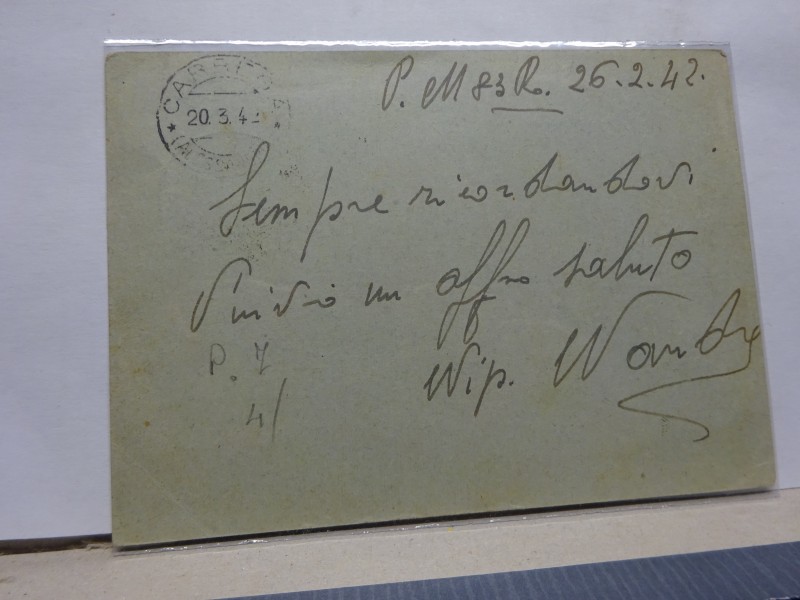 20.3.4
P. M 83 R. 26.2.42.
Sempre ricordandovi
V'invio un affmo saluto
Nip. Wandy
P. 7
4/